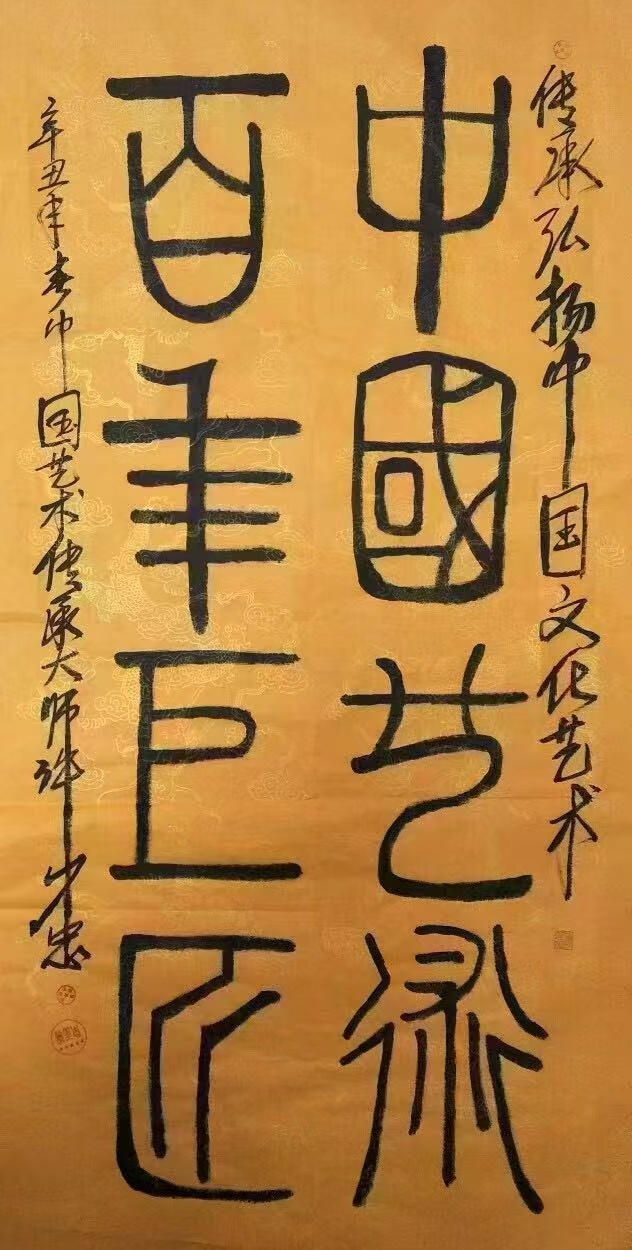 传承弘扬中国文化艺术
中國艺術
百年巨匠
辛丑年春中国艺术传承大师许少忠